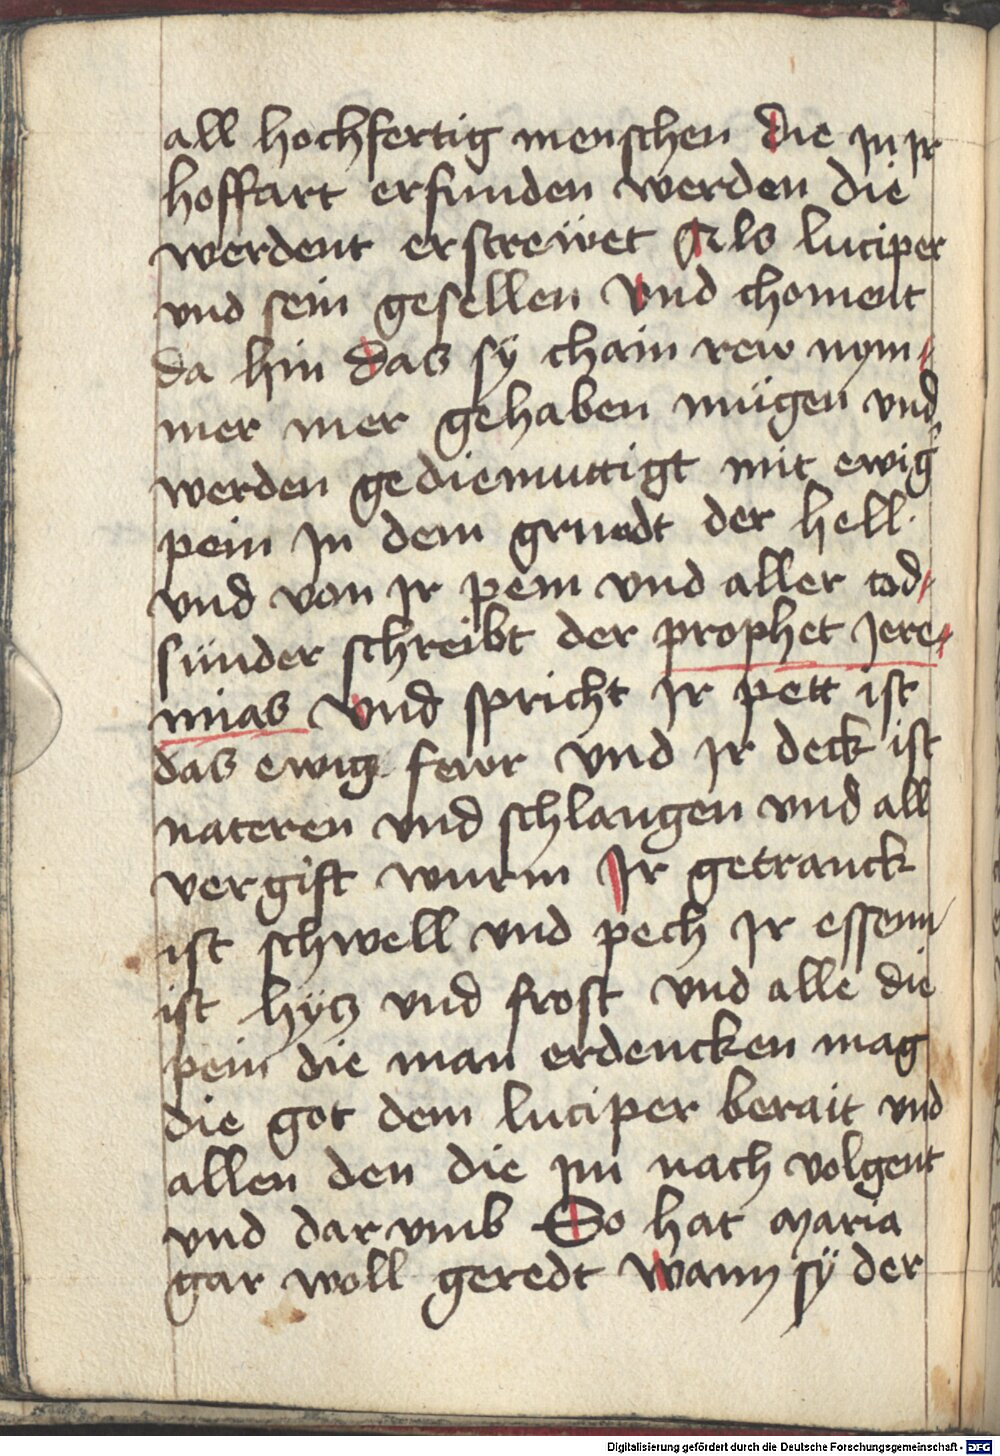 all hochfertig menschen die in ir
hoffart erfunden werden die
werdent erstrewet Als luciper
vnd sein gesellen Vnd choment
da hin das sÿ chain rew nym-
mer mer gehaben mügen vnd
werden gediemuttigt mit ewig
pein in dem grundt der hell.
vnd von ir pein vnd aller tod-
sünder schreibt der prophet Jere-
mias Vnd spricht ir pett ist
das ewig fewr vnd ir deck ist
nateren vnd schlangen vnd all
vergift wurm Ir getranck
ist schwell vnd pech ir essenn
ist hÿtz vnd frost vnd alle die
pein die man erdencken mag
die got dem luciper berait vnd
allen den die im nach volgent
vnd dar vmb So hat Maria
gar woll geredt wann sÿ der
Digitalisierung gefördert durch die Deutsche Forschungsgemeinschaft - DFG